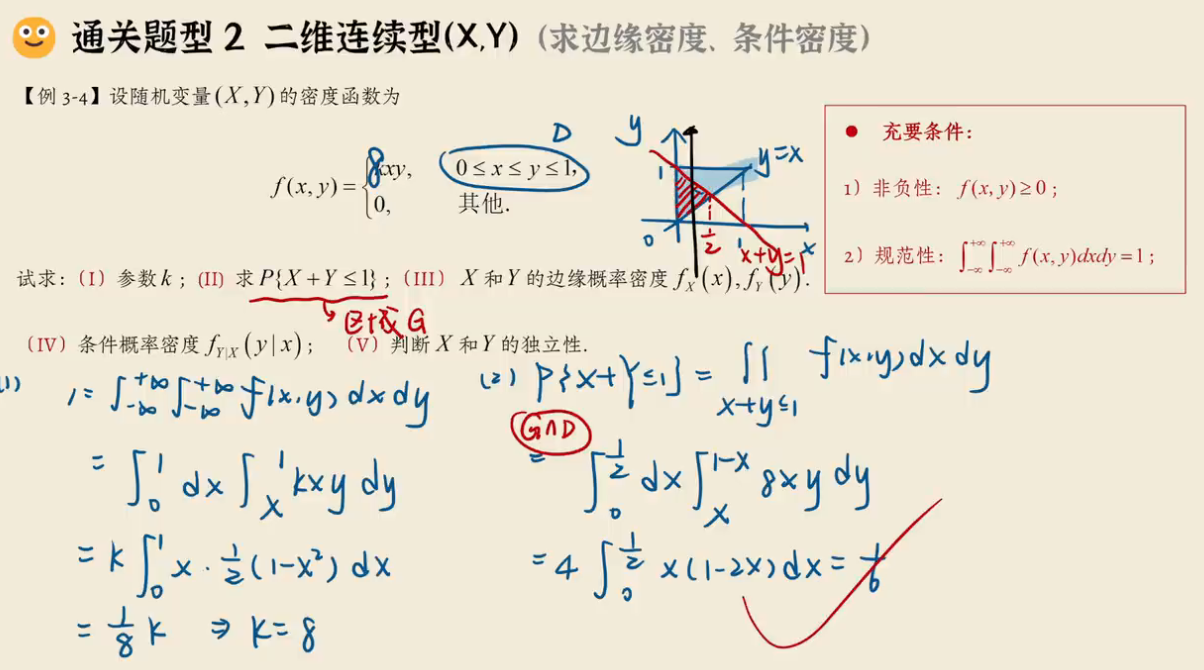 通关题型 2 二维连续型(X,Y) (求边缘密度、条件密度)
【例 3-4】设随机变量(X,Y)的密度函数为
f(x,y)={8kxy, 0≤x≤y≤1,
0, 其他.
D
y
1
y=x
0
1/2
1
x
x+y=1
● 充要条件:
1) 非负性: f(x,y)≥0;
2) 规范性: ∫_{-∞}^{+∞}∫_{-∞}^{+∞} f(x,y)dxdy=1;
试求:(I) 参数k; (II) 求P{X+Y≤1}; (III) X和Y的边缘概率密度f_X(x),f_Y(y).
G
(IV) 条件概率密度f_{Y|X}(y|x); (V) 判断X和Y的独立性.
(1) 1=∫_{-∞}^{+∞}∫_{-∞}^{+∞}f(x,y)dxdy
=∫_0^1 dx∫_x^1 kxy dy
=k∫_0^1 x·1/2(1-x²)dx
=1/8 k ⇒ k=8
(2) P{X+Y≤1}=∬_{x+y≤1} f(x,y)dxdy
G∩D
=∫_0^{1/2} dx∫_x^{1-x} 8xy dy
=4∫_0^{1/2} x(1-2x)dx=1/6